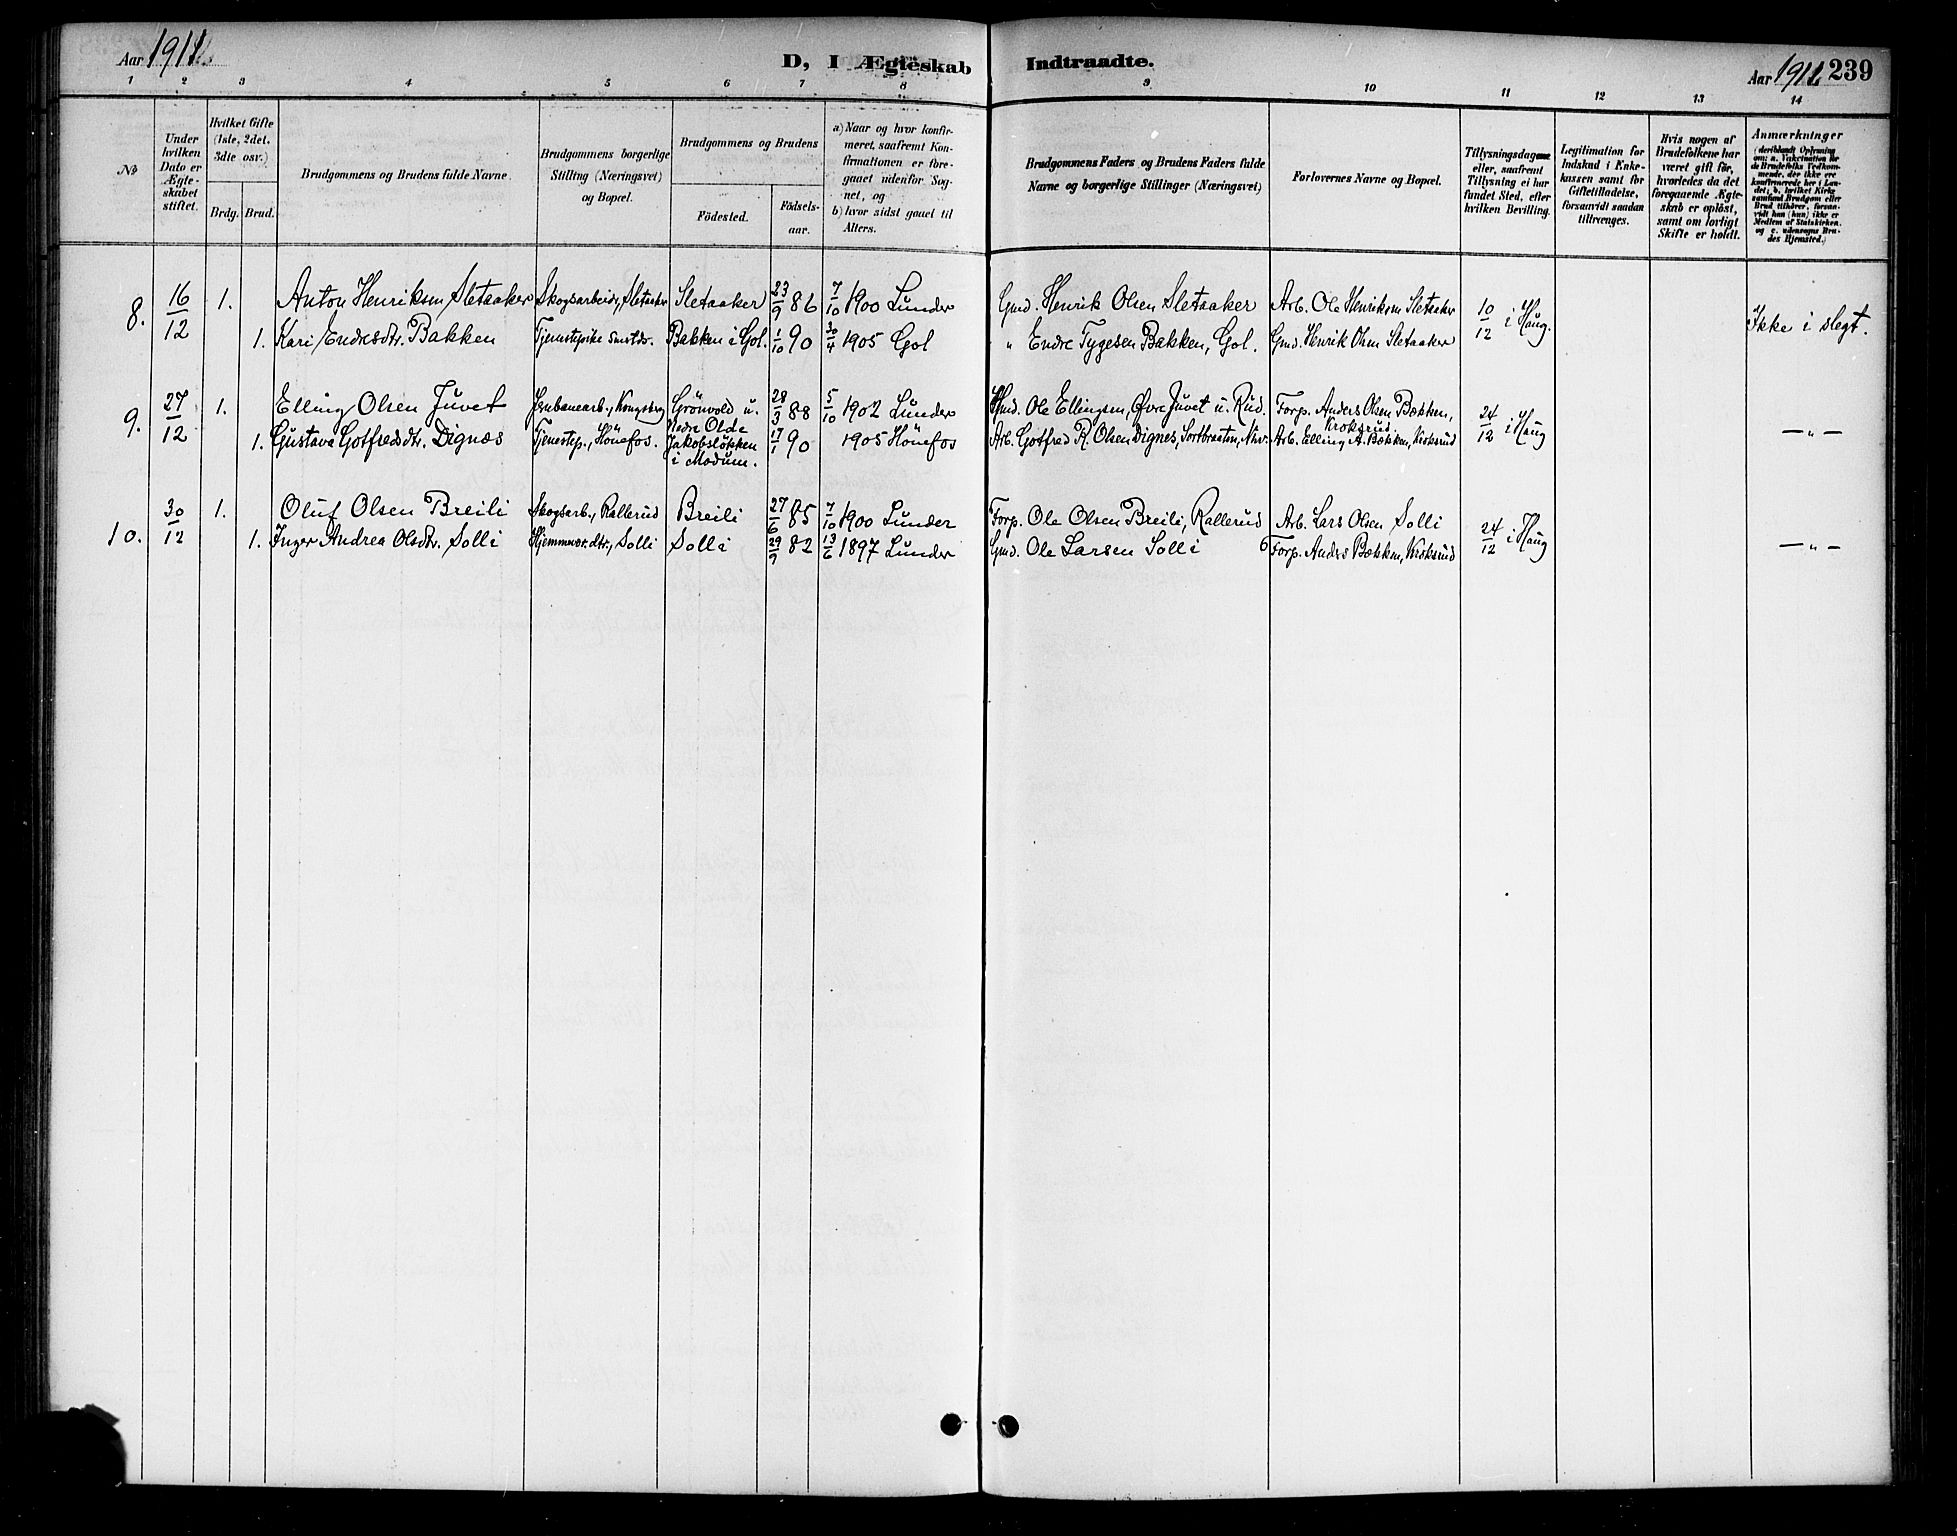 Aar 1911
D, I Ægteskab Indtraadte.
Aar 1911 239
1 2 3 4 5 6 7 8 9 10 11 12 13 14
No
Under hvilken Dato er Ægteskabet stiftet.
Hvilket Gifte (1ste, 2det, 3die osv.)
Brdg. Brud.
Brudgommens og Brudens fulde Navne.
Brudgommens borgerlige Stilling (Næringsvei) og Bopæl.
Brudgommens og Brudens
Födested. Födselsaar.
a) Naar og hvor konfirmeret, saafremt Konfirmationen er foregaaet udenfor Sognet, og
b) hvor sidst gaaet til Alters.
Brudgommens Faders og Brudens Faders fulde Navne og borgerlige Stillinger (Næringsvei)
Forlovernes Navne og Bopæl.
Tillysningsdagene eller, saafremt Tillysning ei har fundet Sted, efter hvilken Bevilling.
Legitimation for Indskud i Enkekassen samt for Giftetilladelse, forsaavidt saadan tiltrænges.
Hvis nogen af Brudefolkene har været gift før, hvorledes da det foregaaende Ægteskab er opløst, samt om lovligt Skifte er holdt.
Anmærkninger (deriblandt Oplysning om: a. Vakcination for de Brudefolks Vedkommende, der ikke ere konfirmerede her i Landet; b. hvilket Kirkesamfund Brudgom eller Brud tilhører, forsaavidt han (hun) ikke er Medlem af Statskirken, og c. udensogns Brudes Hjemsted.)
8. 16/12 1. Anton Henriksen Sletaaker Skogsarbeider, Sletaaker Sletaaker 23/9 86 7/10 1900 Lunder Gmd. Henrik Olsen Sletaaker Arb. Ole Henriksen Sletaaker 10/12 i Haug. Ikke i slegt.
1. Kari Endresdtr. Bakken Tjenestepike Bakken i Gol. 1/10 90 30/4 1905 Gol " Endre Tygesen Bakken, Gol. Gmd. Henrik Olsen Sletaaker
9. 27/12 1. Elling Olsen Juvet Jernbanearb., Kongsberg Grönvold u. Nedre Olde 28/3 88 5/10 1902 Lunder Hmd. Ole Ellingsen, Øvre Juvet u. Rud. Forp. Anders Olsen Bækken, Kroksrud. 24/12 i Haug — " —
1. Gustava Gotfredsdtr. Dignæs Tjenestep., Hönefos. Jakobsløkken i Modum. 17/1 90 1905 Hönefos Arb. Gotfred R. Olsen Dignes, Sortbraaten, Arb. Elling A. Bækken, Kroksrud
10. 30/12 1. Oluf Olsen Breili Skogsarb., Rallerud Breili 27/6 85 7/10 1900 Lunder Forp. Ole Olsen Breili, Rallerud Arb. Lars Olsen Solli 24/12 i Haug — " —
1. Inger Andrea Olsdtr. Solli Hjemmev. dtr., Solli Solli 29/9 82 13/6 1897 Lunder Gmd. Ole Larsen Solli Forp. Anders Bækken, Kroksrud